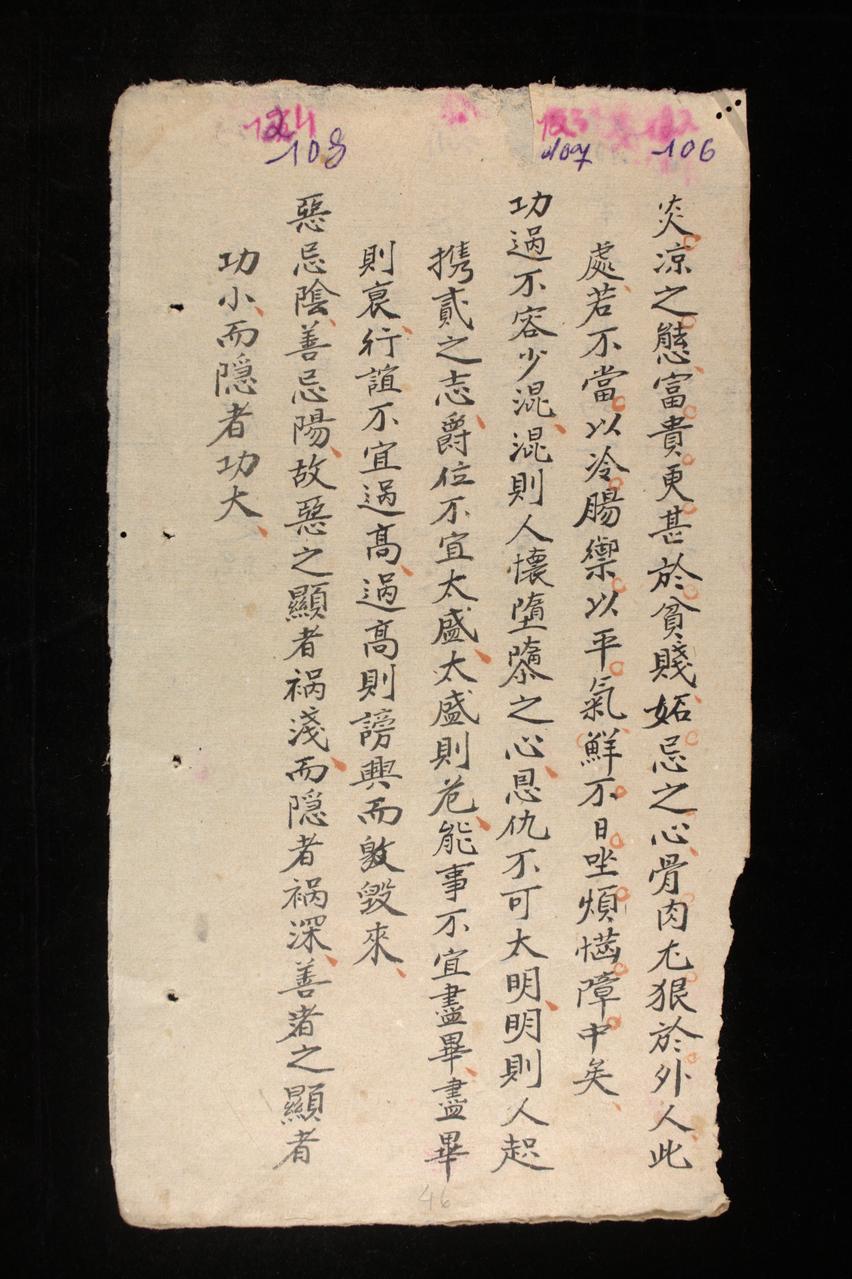 124 123 122
108 107 106
炎凉之態富貴更甚於貧賤妬忌之心骨肉尤狠於外人此
處若不當以冷腸禦以平氣鮮不日坐煩惱障中矣
功過不容少混混則人懷墮隳之心恩仇不可太明明則人起
携貳之志爵位不宜太盛太盛則危能事不宜盡畢盡畢
則衰行誼不宜過高過高則謗興而毀來
惡忌陰善忌陽故惡之顯者禍淺而隱者禍深善者之顯者
功小而隱者功大
46